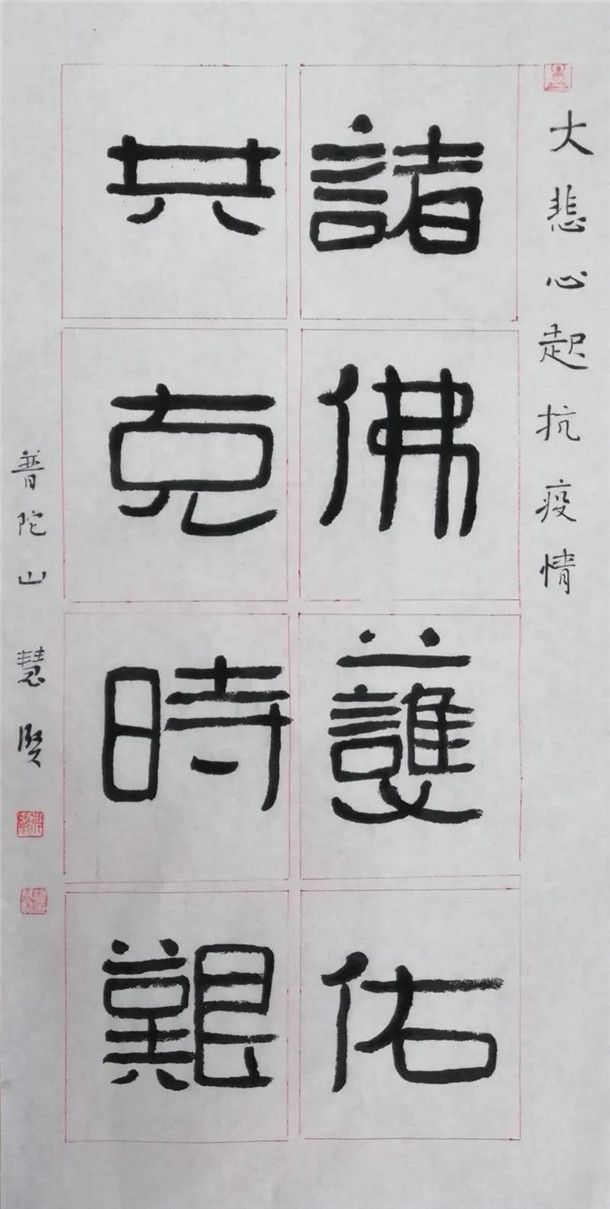 大悲心起抗疫情
諸佛護佑
共克時艱
普陀山 慧賢